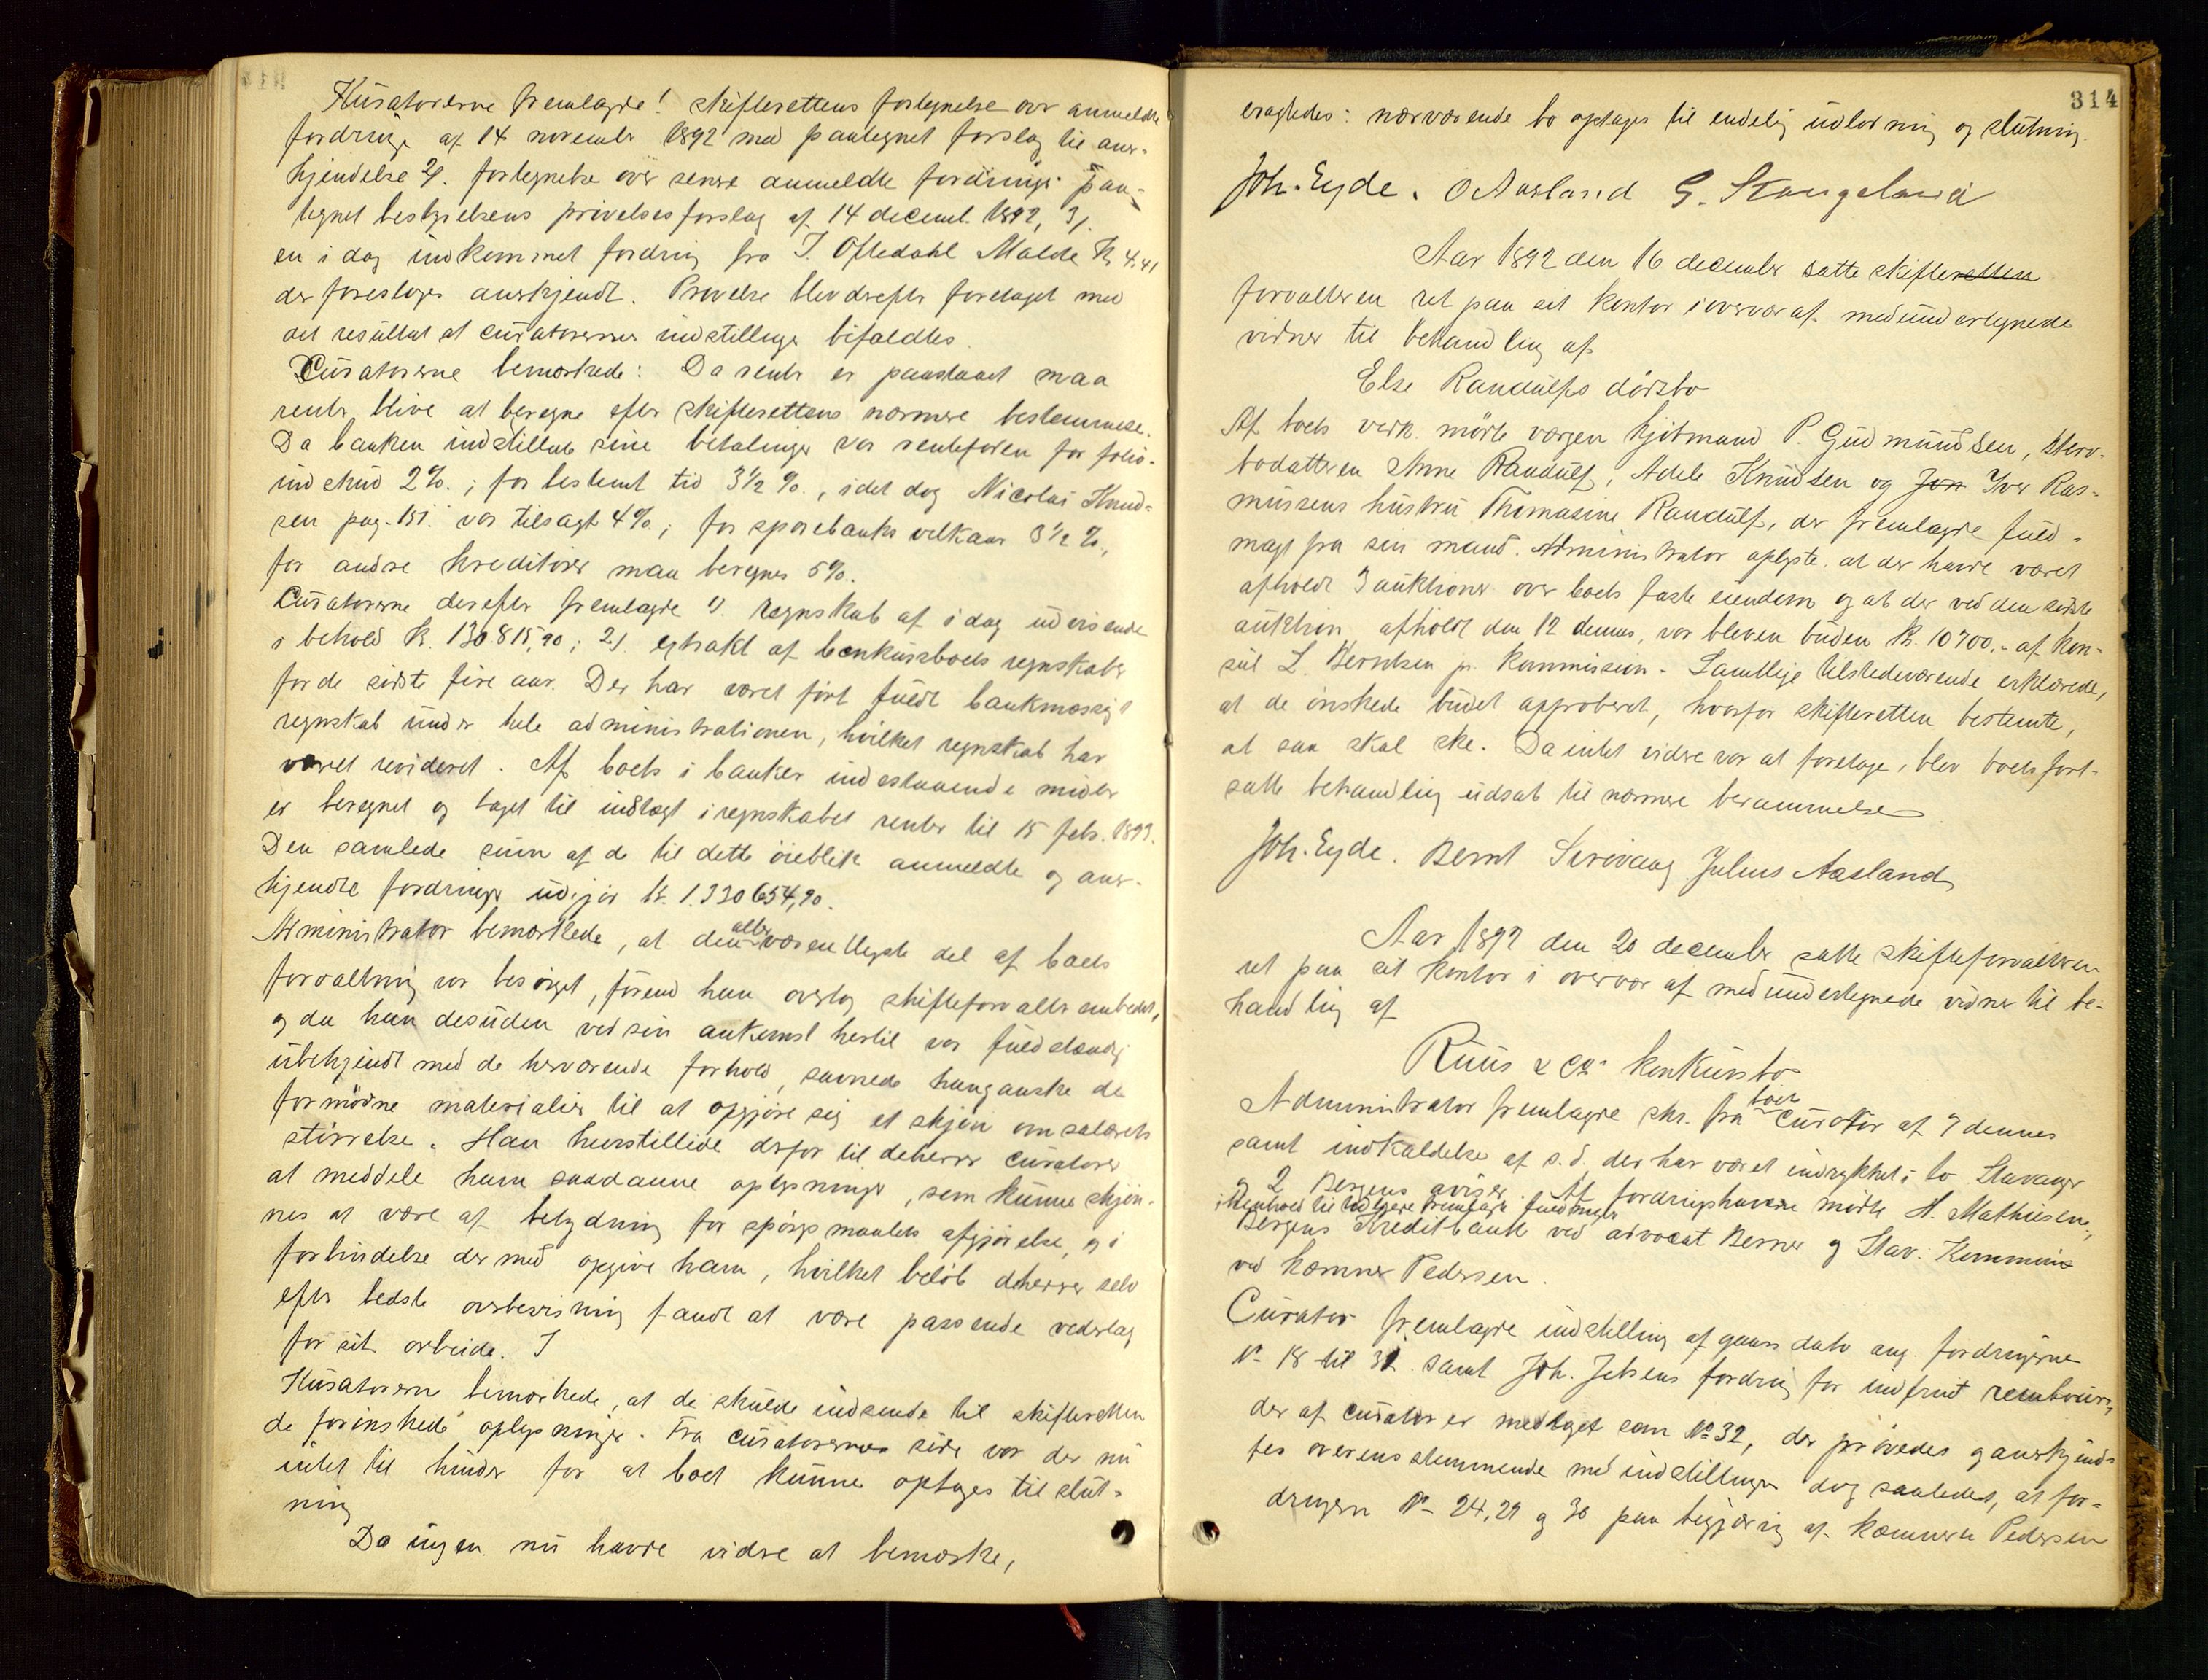 Kuratorerne fremlagde 1 skifterettens fortegnelse over anmeldte
fordringer af 14 november 1892 med paategnet forslag til aner-
kjendelse 2). fortegnelse over senere anmeldte fordringer paa-
tegnet bestyrelsens prøvelsesforslag af 14 decembr. 1892, 3).
en i dag indkommet fordring fra T. Oftedahl Malde Kr 4,41
der foresloges anerkjendt. Prøvelse blev derefter foretaget med
det resultat at curatorernes indstillinger bifaldtes.
Curatorerne bemærkede: Da renter er paastaaet maa
renter blive at beregne efter skifterettens nærmere bestemmelse.
Da banken indstillede sine betalinger var rentefoden for folio-
indskud 2%.; for bestemt tid 3½%., idet dog Nicolai Knud-
sen pag. 151. var tilsagt 4%; for sparebanks vilkaar 3½%.,
for andre kreditorer maa beregnes 5%.
Curatorerne derefter fremlagde 1). regnskab af i dag udvisende
i behold Kr. 130.815,90; 2). extrakt af bankusboets regnskaber
for de sidste fire aar. Der har været ført fuldt bankmæssigt
regnskab under hele administrationen, hvilket regnskab har
været revideret. Af boets i banker indestaaende midler
er beregnet og taget til indtægt i regnskabet renter til 15 febr. 1893.
Den samlede sum af de til dette øieblik anmeldte og aner-
kjendte fordringer udgjør kr. 1.330654,90.
Administrator bemærkede, at den aller væsentligste del af boets
forvaltning var besørget, førend han overtog skifteforvalterembedet,
og da han desuden ved sin ankomst hertil var fuldstændig
ubekjendt med de herværende forhold, savnede han ganske de
fornødne materialier til at opgjøre sig et skjøn om salærets
størrelse. Han henstillede derfor til de herrer curatorer
at meddele ham saadanne oplysninger, som kunne skjøn-
nes at være af betydning for spørgsmaalets afgjørelse, og i
forbindelse dermed opgive ham, hvilket beløb de herrer selv
efter bedste overbevisning fandt at være passende vederlag
for sit arbeide.
Kuratorerne bemærkede, at de skulde indsende til skifteretten
de forønskede oplysninger. Fra curatorernes side var der nu
intet til hinder for at boet kunne optages til slut-
ning
Da ingen nu havde vidre at bemærke,
314
eragtedes: nærværende bo optages til endelig udlodning og slutning.
Joh. Eyde. O Aasland G. Stangeland
Aar 1892 den 16 december satte skifteretten
forvalteren ret paa sit kontor i overvær af medundertegnede
vidner til behandling af
Else Randulfs dødsbo
Af boets vedk. mødte værgen kjøbmand P. Gudmundsen, sterv-
bodatteren Anne Randulf, Adele Knudsen og Jon Iver Ras-
mussens hustru Thomasine Randulf, der fremlagde fuld-
magt fra sin mand. Administrator oplyste at der havde været
afholdt 3 auktioner over boets faste eiendom og at der ved den sidste
auktion, afholdt den 12 dennes, var bleven buden Kr. 10700.- af kon-
sul L. Berntsen jr. kommission. Samtlige tilstedeværende erklærede,
at de ønskede budet approberet, hvorfor skifteretten bestemte,
at saa skal ske. Da intet vidre var at foretage, blev boets fort-
satte behandling udsat til nærmere berammelse
Joh. Eyde. Bernt Sirevaag Julius Aasland
Aar 1892 den 20 december satte skifteforvalteren
ret paa sit kontor i overvær af medundertegnede vidner til be-
handling af
Ruus & Co konkursbo
Administrator fremlagde skr. fra boets curator af 7 dennes
samt indkaldelse af s.d. der har været indrykket i to Stavanger
og 2 Bergens aviser. Af fordringshaverne mødte H. Mathiesen,
i Henhold til tidligere fremlagt fuldmagt
Bergens Kreditbank ved advocat Berner og Stav. Kommune
ved kæmner Pedersen.
Curator fremlagde indstilling af gaars dato ang. fordringerne
No 18 til 31 samt Joh. Jebsens fordring for indfriet rembours,
der af curator er medtaget som No 32, der prøvedes og anerkjend-
tes overensstemmende med indstillingen dog saaledes, at for-
dringerne No 24, 29 og 30 paa begjæring af kæmneren Pedersen